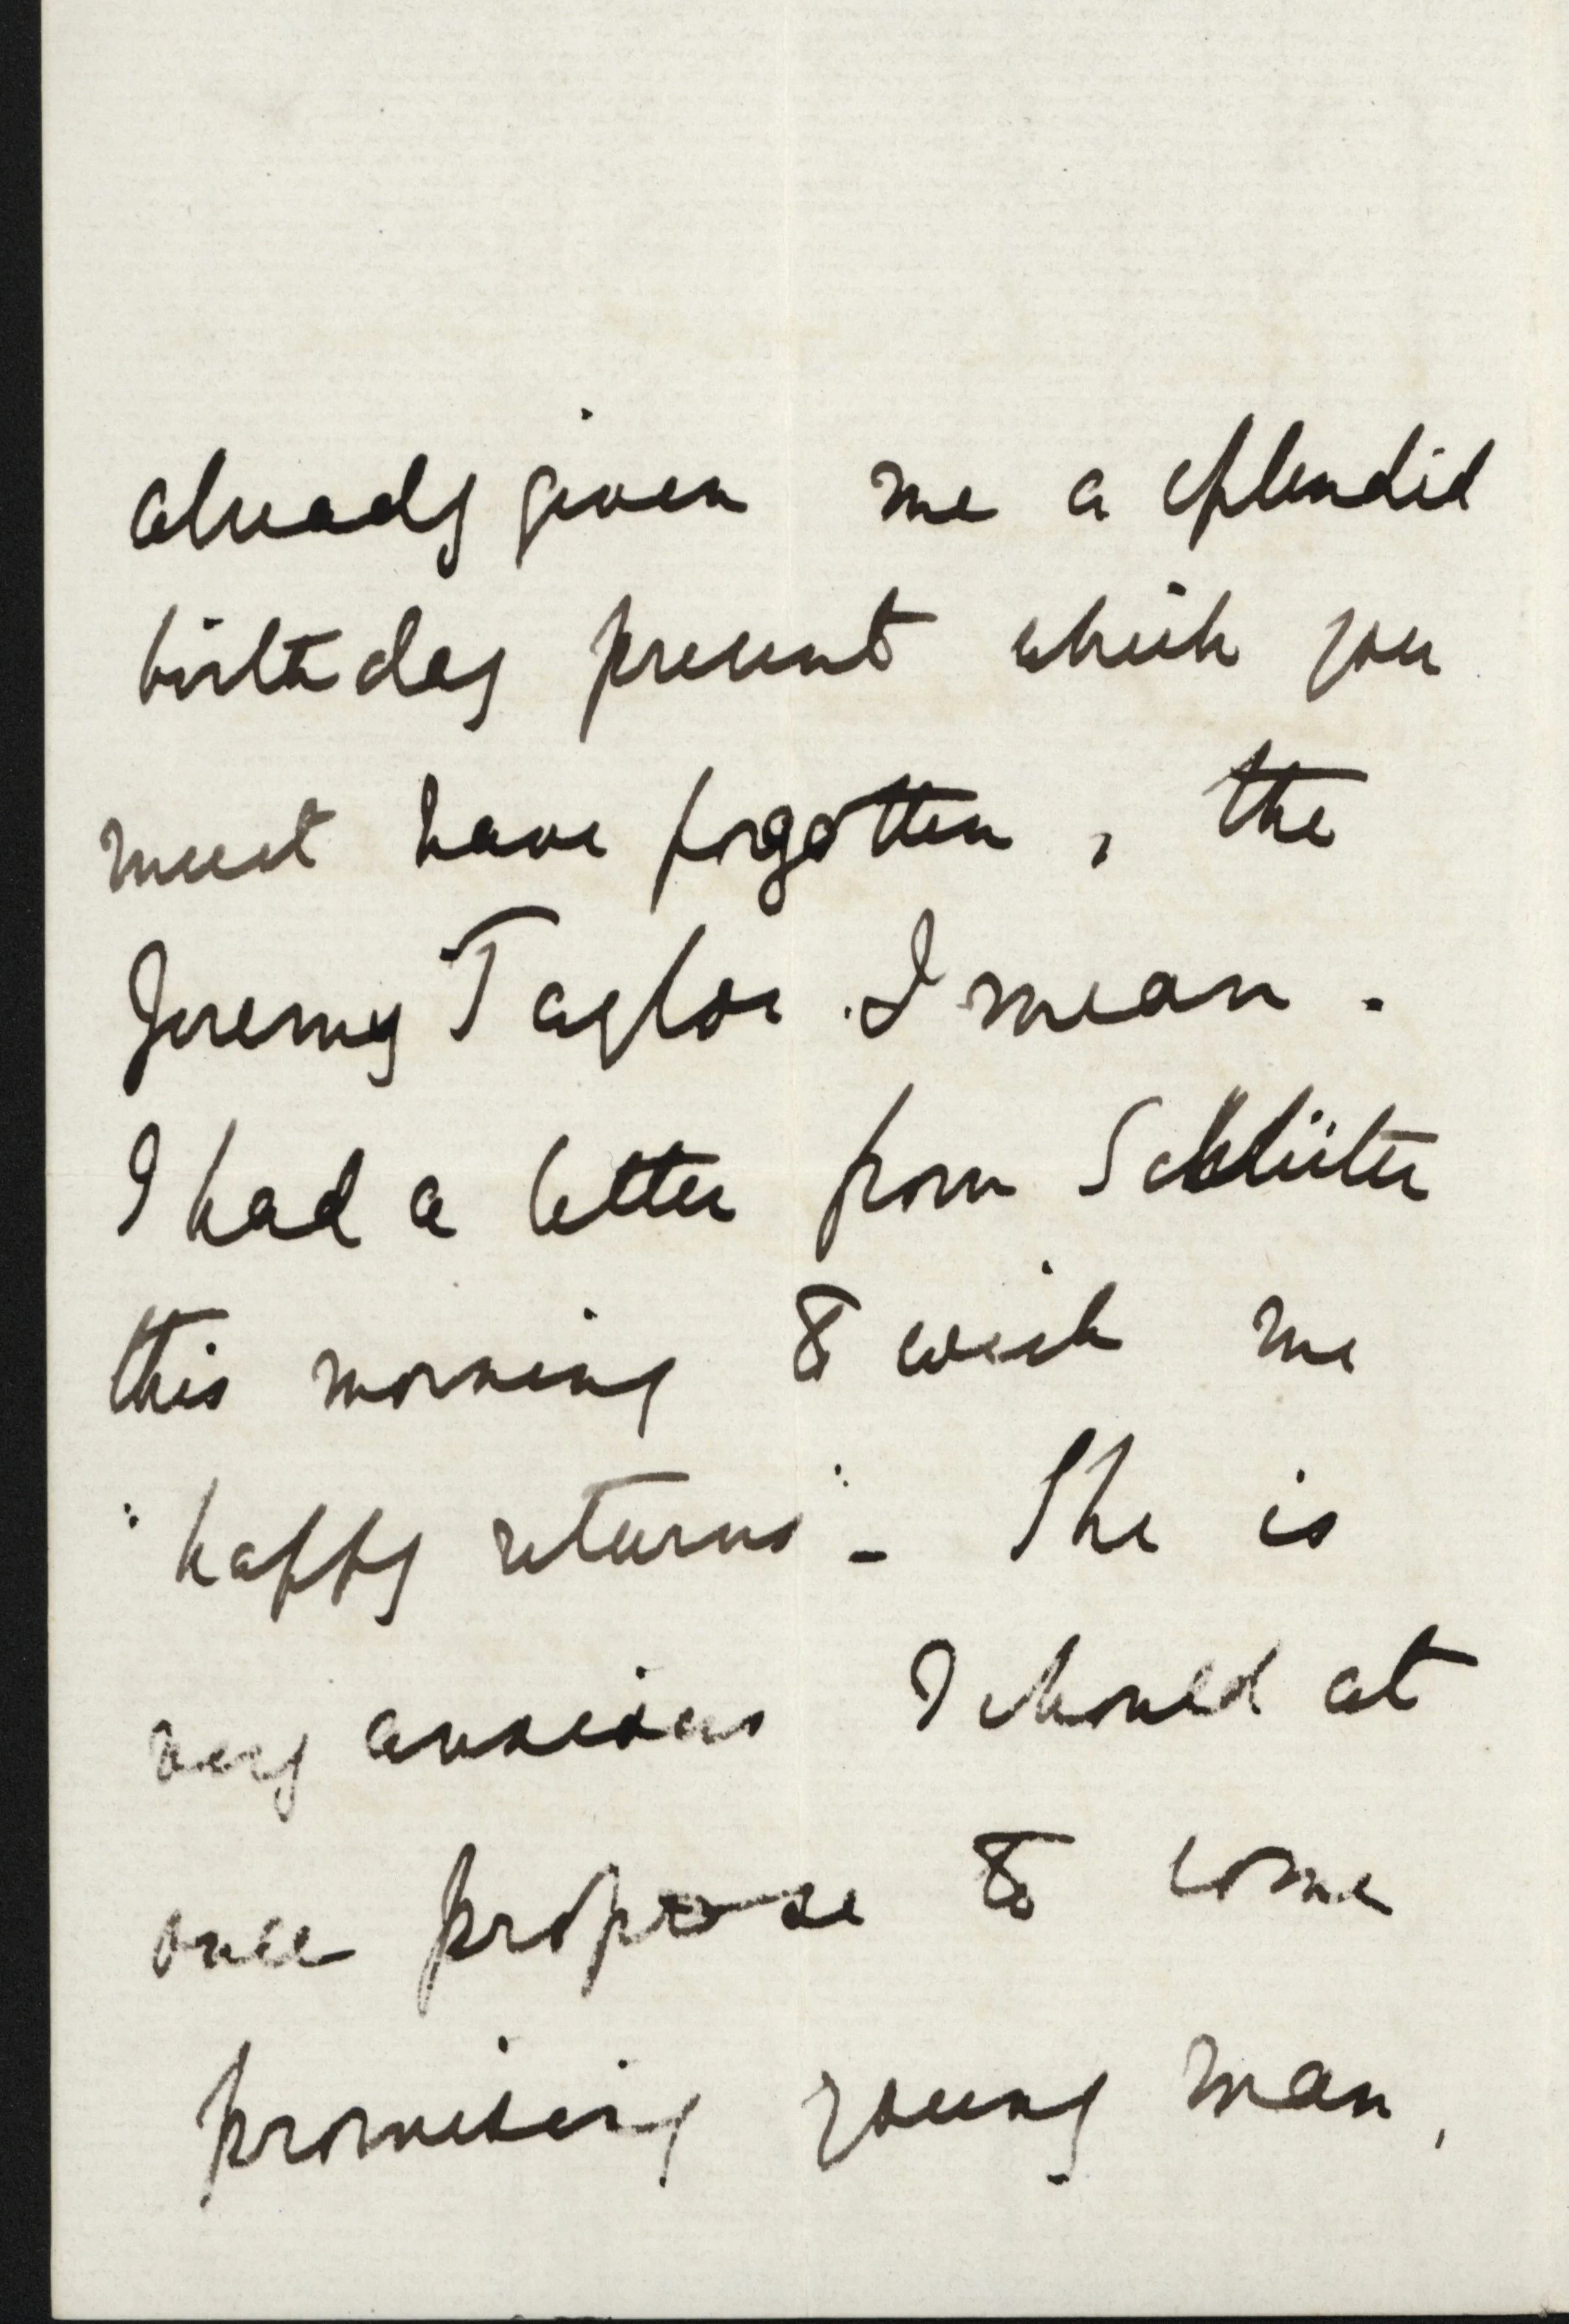 already given me a splendid
birthday present which you
must have forgotten, the
Jeremy Taylor I mean.
I had a letter from Schlüter
this morning to wish me
"happy returns" - She is
very anxious I should at
once propose to some
promising young man,